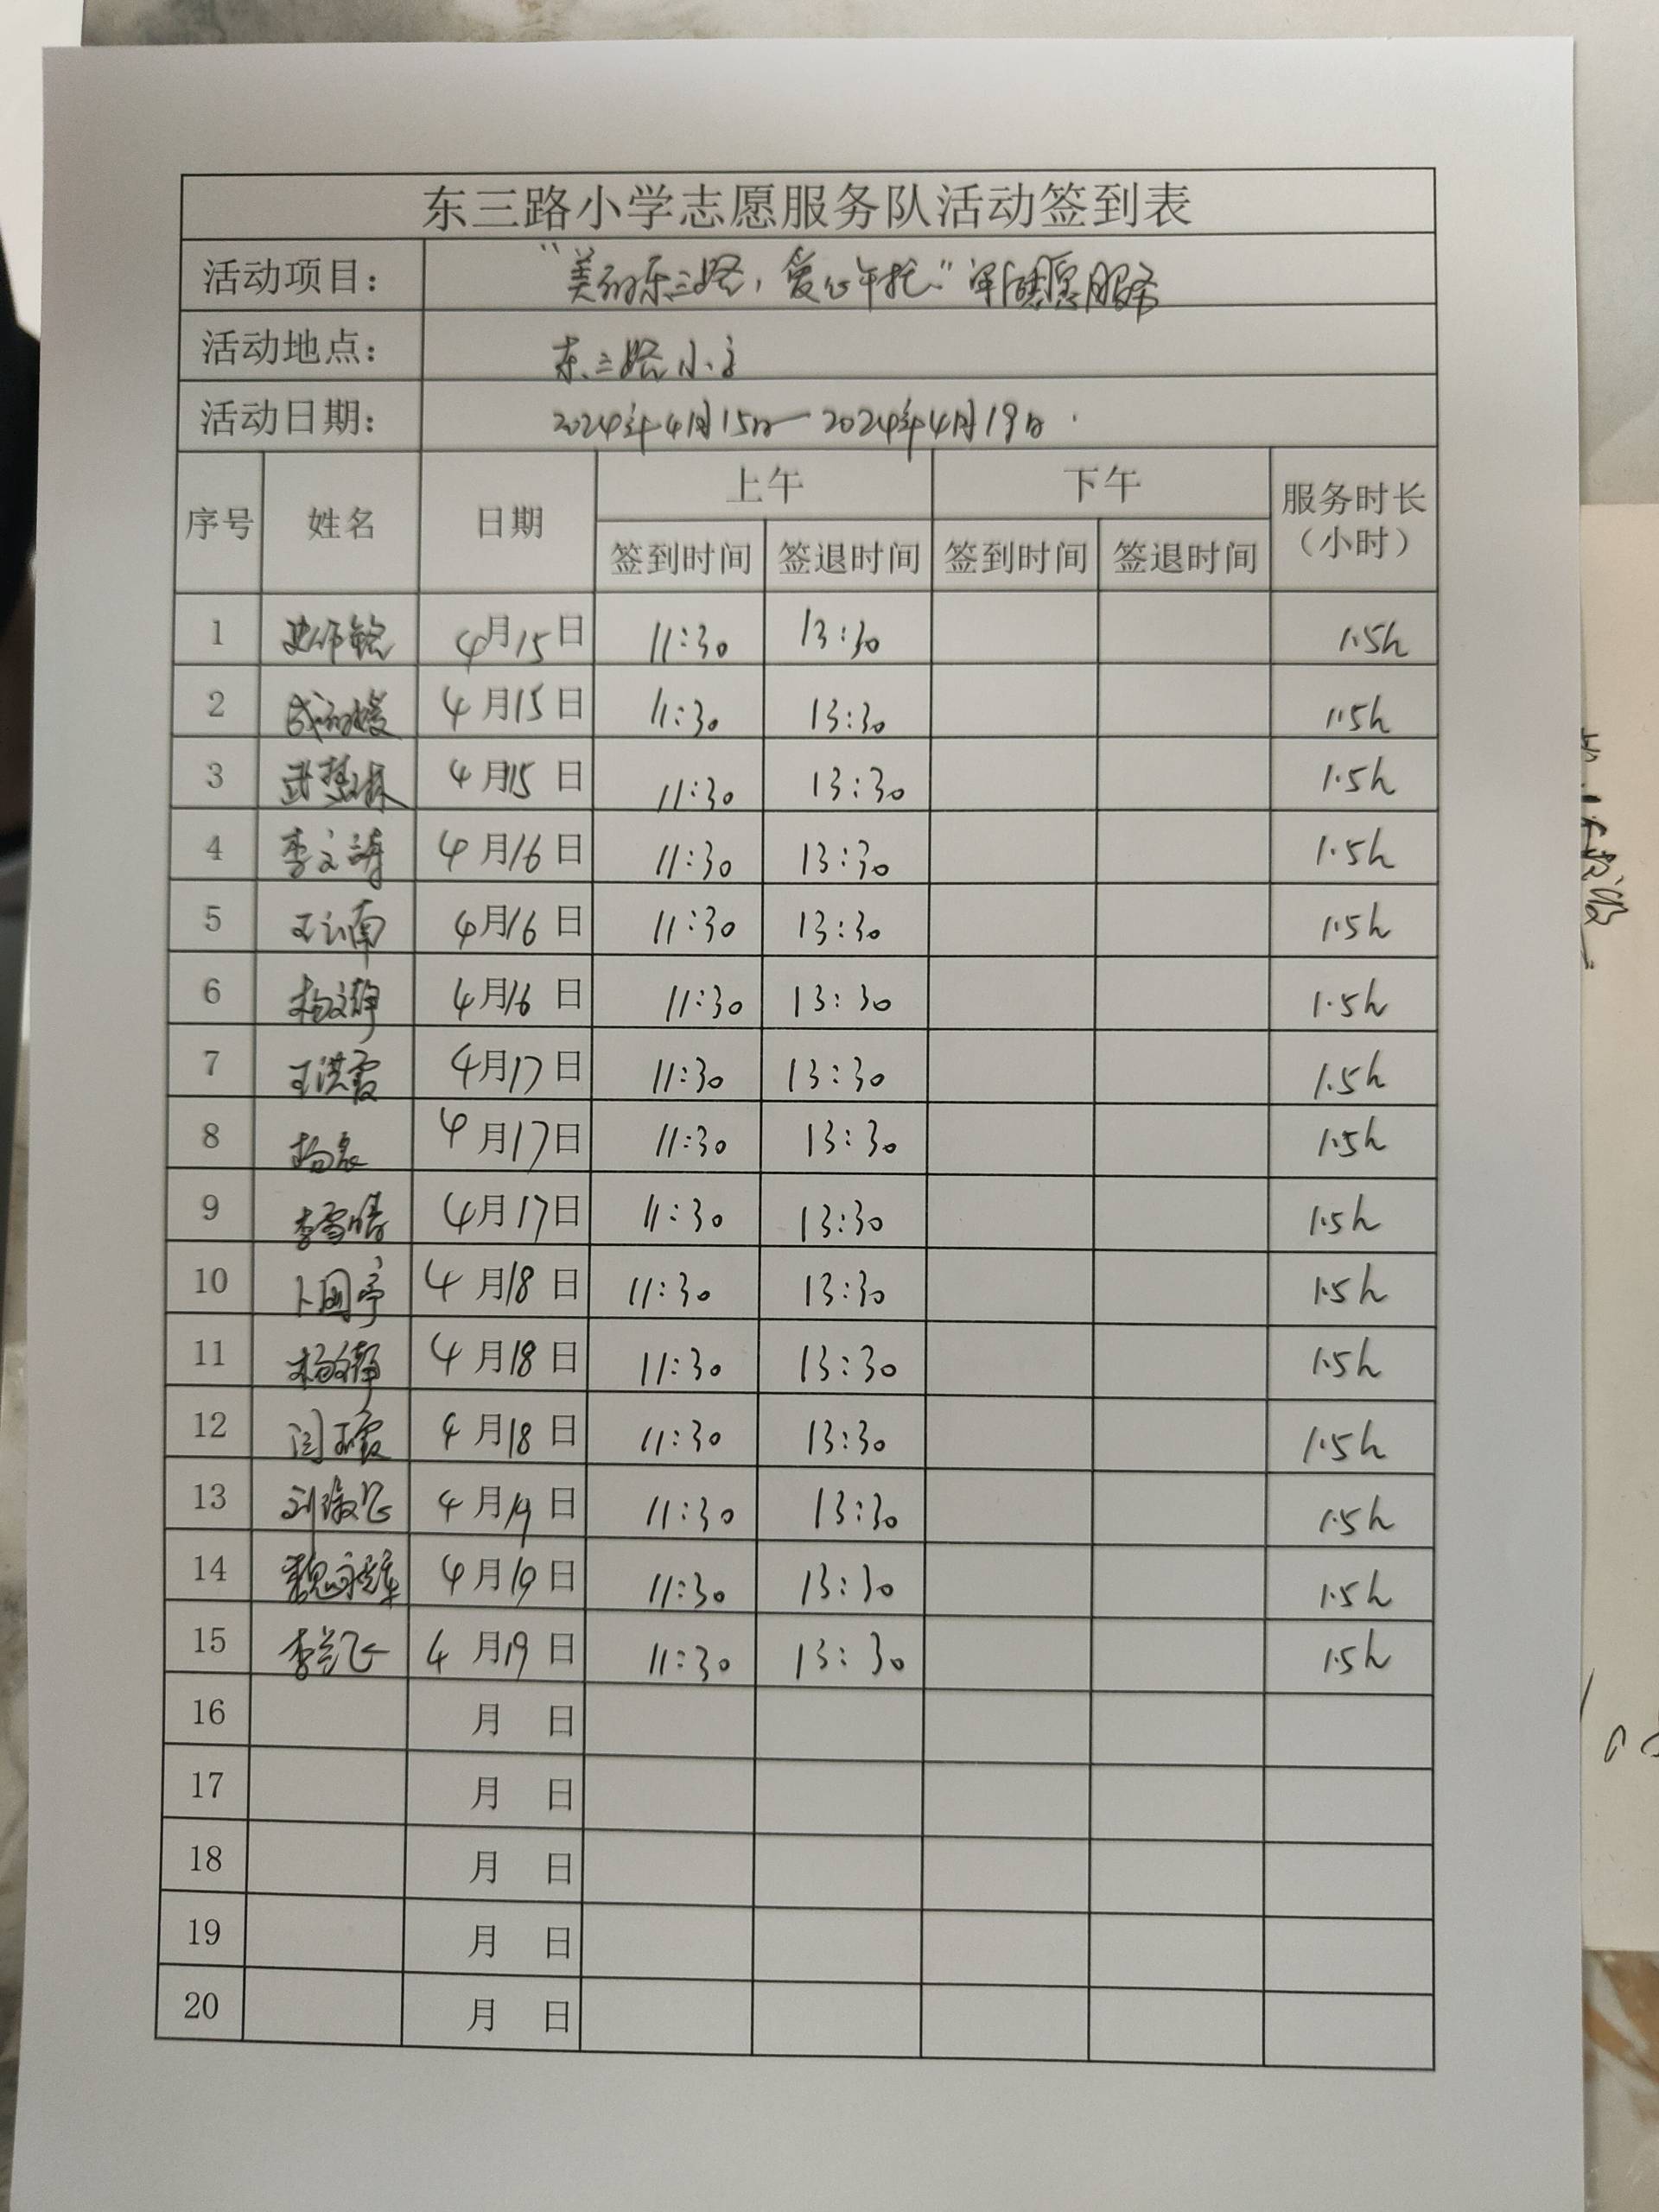 东三路小学志愿服务队活动签到表
活动项目： “美丽东三路，爱心午托”志愿服务
活动地点： 东三路小学
活动日期： 2024年4月15日—2024年4月19日
序号 姓名 日期 上午 下午 服务时长（小时）
签到时间 签退时间 签到时间 签退时间
1 4月15日 11:30 13:30 1.5h
2 4月15日 11:30 13:30 1.5h
3 4月15日 11:30 13:30 1.5h
4 李文涛 4月16日 11:30 13:30 1.5h
5 王云南 4月16日 11:30 13:30 1.5h
6 杨文静 4月16日 11:30 13:30 1.5h
7 王洪霞 4月17日 11:30 13:30 1.5h
8 4月17日 11:30 13:30 1.5h
9 李雪晴 4月17日 11:30 13:30 1.5h
10 4月18日 11:30 13:30 1.5h
11 杨文静 4月18日 11:30 13:30 1.5h
12 闫玉霞 4月18日 11:30 13:30 1.5h
13 4月19日 11:30 13:30 1.5h
14 4月19日 11:30 13:30 1.5h
15 李兰飞 4月19日 11:30 13:30 1.5h
16 月 日
17 月 日
18 月 日
19 月 日
20 月 日